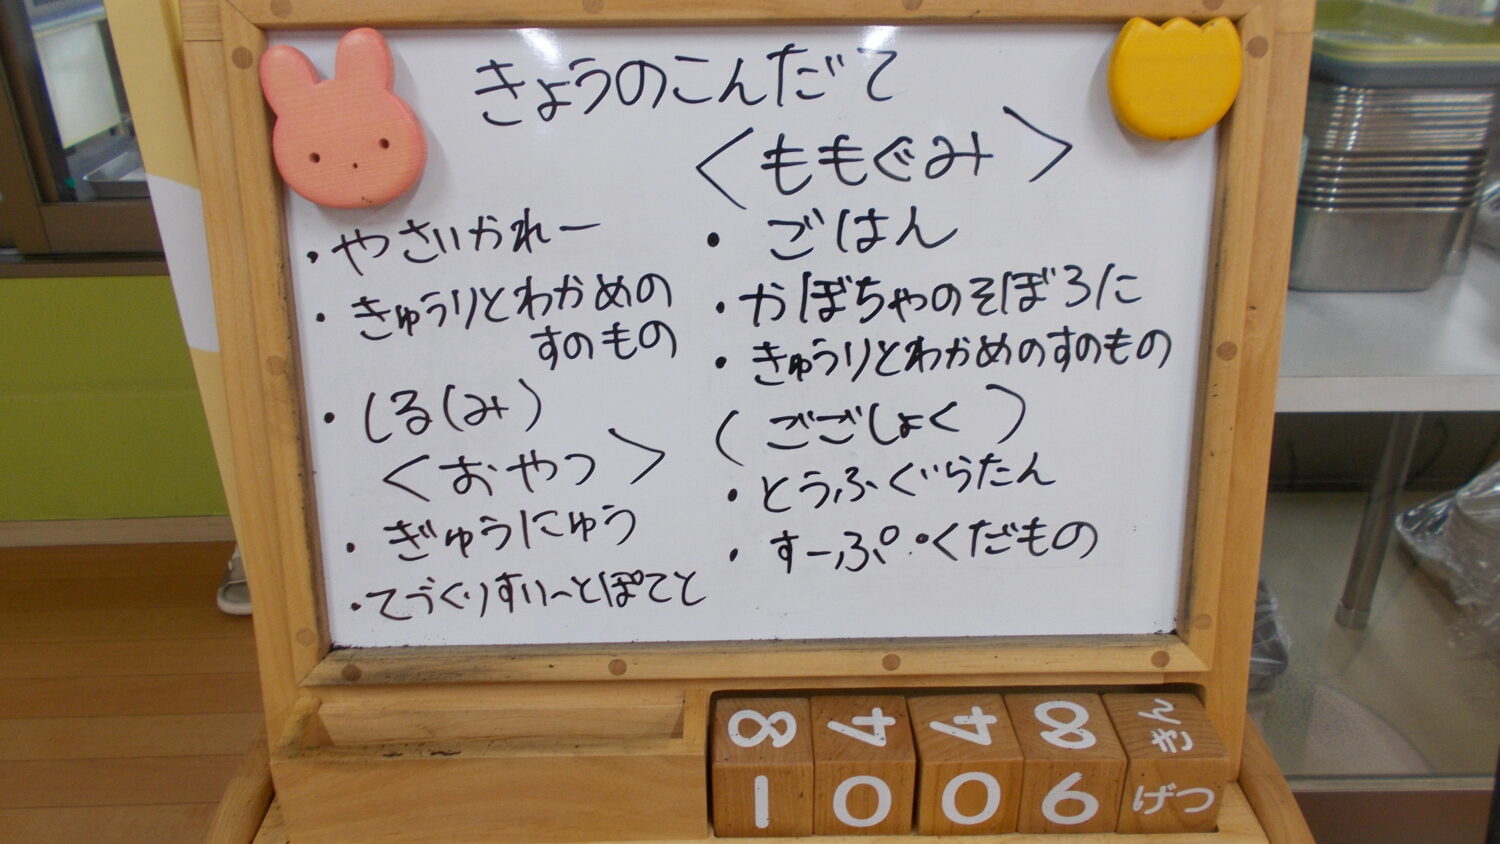 きょうのこんだて
・やさいかれー
・きゅうりとわかめの
すのもの
・しる(み)
<おやつ>
・ぎゅうにゅう
・てづくりすいーとぽてと
<ももぐみ>
・ごはん
・かぼちゃのそぼろに
・きゅうりとわかめのすのもの
(ごごしょく)
・とうふぐらたん
・すーぷ・くだもの
8 4 4 8 きん
1 0 0 6 げつ